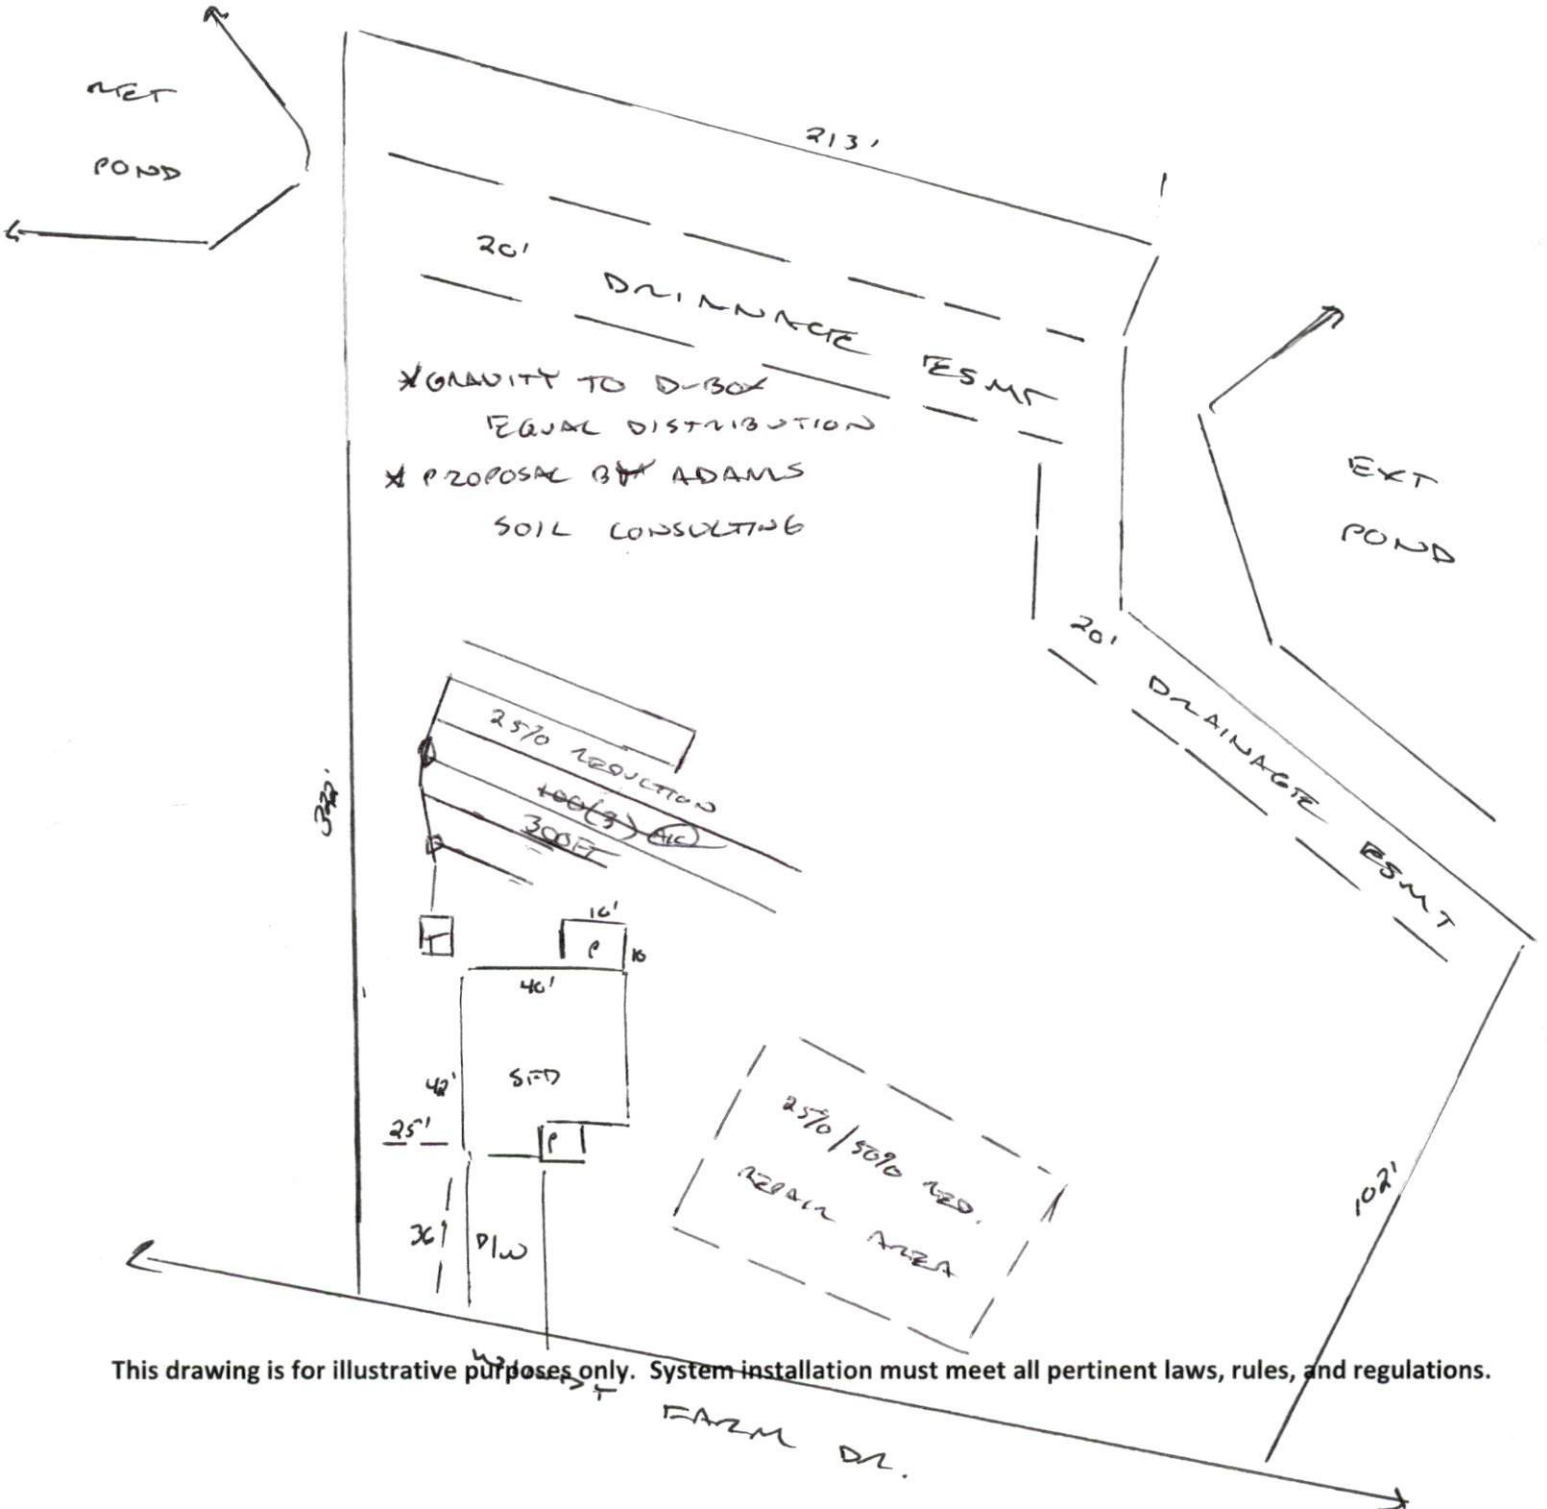 POND
213'
20'
DRINNAGE ESMT
*GRAVITY TO D-BOX
EQUAL DISTRIBUTION
* PROPOSAL BY ADAMS
SOIL CONSULTING
EXT
POND
20'
DRAINAGE ESMT
25% REDUCTION
100(3)
300FT
T
10'
P
10
40'
SFD
42'
25'
P
36'
D/W
25%/50% RED.
REPAIR AREA
102'
This drawing is for illustrative purposes only. System installation must meet all pertinent laws, rules, and regulations.
FARM DR.